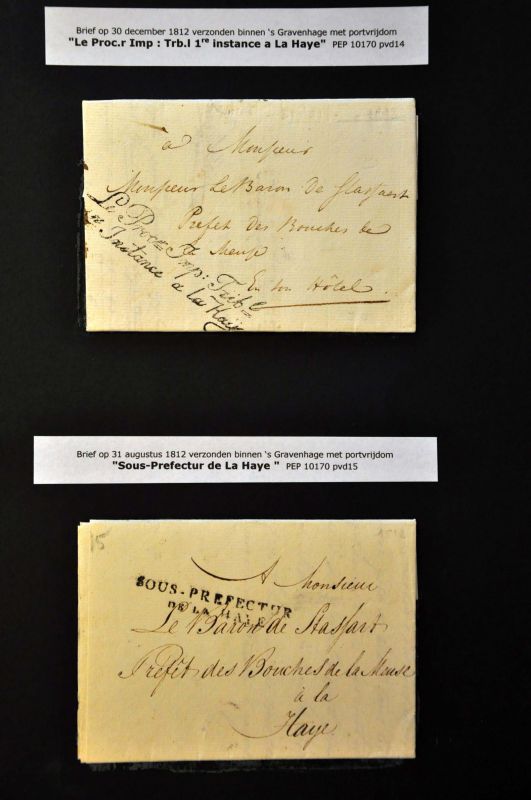 Brief op 30 december 1812 verzonden binnen 's Gravenhage met portvrijdom
"Le Proc.r Imp : Trb.l 1re instance a La Haye" PEP 10170 pvd14
a Monsieur
Monsieur Le Baron de Stassart
Prefet des Bouches de
la Meuse
En son Hôtel.
Le Procr. Imp: Trib.l
Instance a la Haye
Brief op 31 augustus 1812 verzonden binnen 's Gravenhage met portvrijdom
"Sous-Prefectur de La Haye " PEP 10170 pvd15
15
SOUS-PREFECTUR
DE LA HAYE
A Monsieur
Le Baron de Stassart
Préfèt des Bouches de la Meuse
à la
Haye.